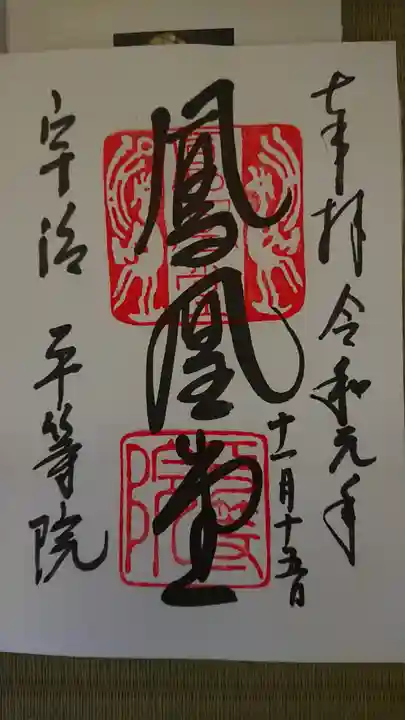 奉拝 令和元年
十一月十五日
鳳凰堂
宇治 平等院